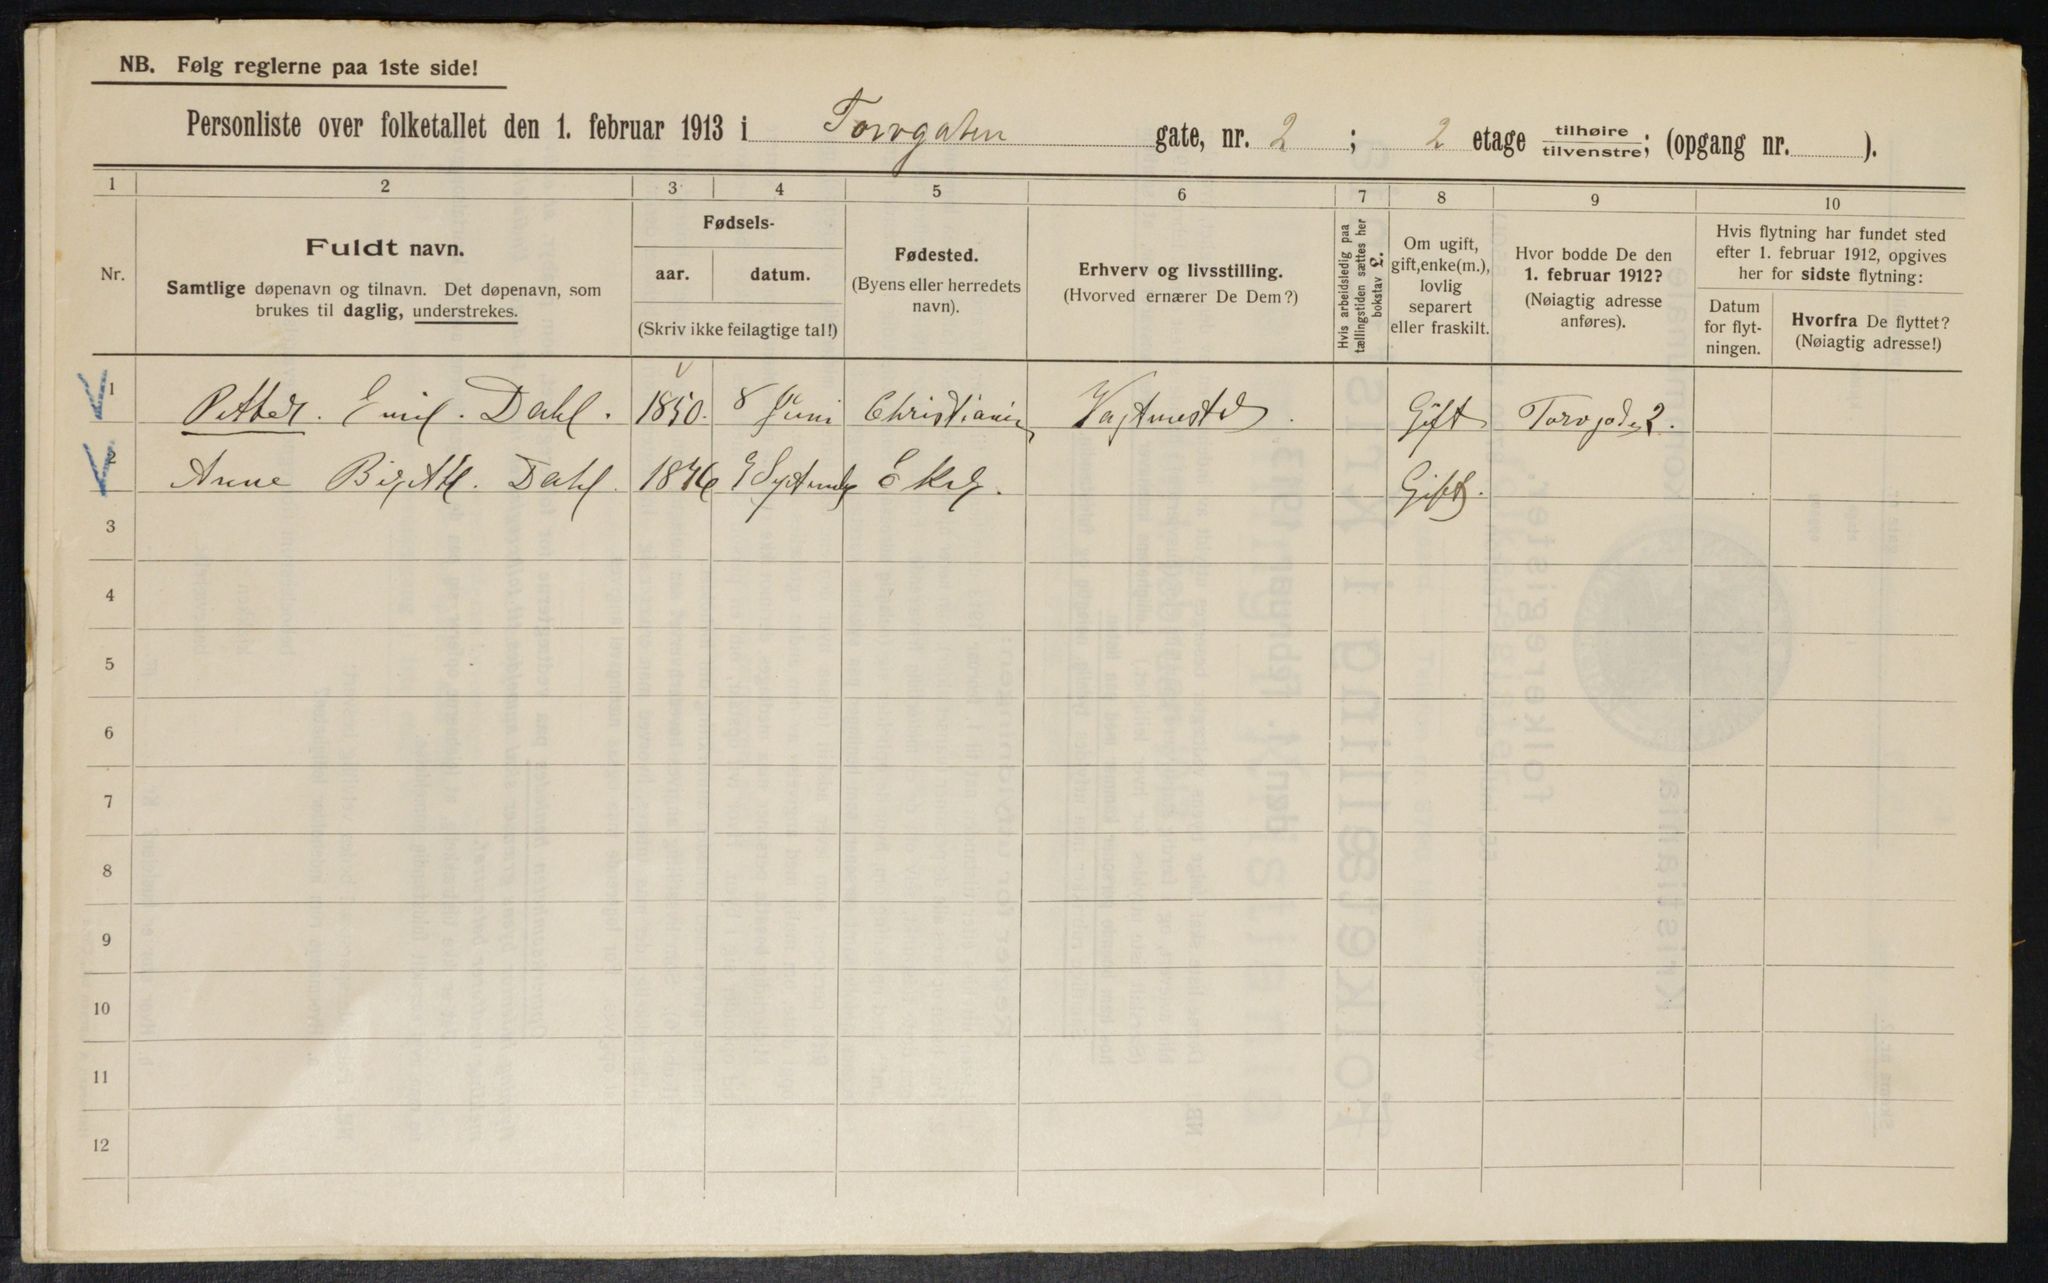 NB. Følg reglerne paa 1ste side!
Personliste over folketallet den 1. februar 1913 i Torvgaten gate, nr. 2 ; 2 etage tilhøire / tilvenstre ; (opgang nr. ).
1 2 3 4 5 6 7 8 9 10
Nr.
Fuldt navn.
Samtlige døpenavn og tilnavn. Det døpenavn, som
brukes til daglig, understrekes.
Fødsels-
aar. datum.
(Skriv ikke feilagtige tal!)
Fødested.
(Byens eller herredets
navn).
Erhverv og livsstilling.
(Hvorved ernærer De Dem?)
Hvis arbeidsledig paa
tællingstiden sættes her
bokstav L.
Om ugift,
gift, enke(m.),
lovlig
separert
eller fraskilt.
Hvor bodde De den
1. februar 1912?
(Nøiagtig adresse
anføres).
Hvis flytning har fundet sted
efter 1. februar 1912, opgives
her for sidste flytning:
Datum
for flyt-
ningen.
Hvorfra De flyttet?
(Nøiagtig adresse!)
1 Petter. Emil. Dahl. 1850. 8 Juni Christiania Gift 2.
2 Anne Dahl. Gift.
3
4
5
6
7
8
9
10
11
12